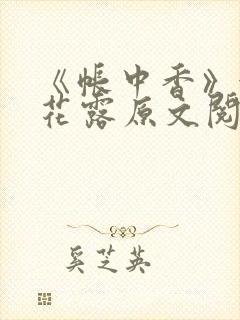 《帐中香》
花露原文阅
奚芝英